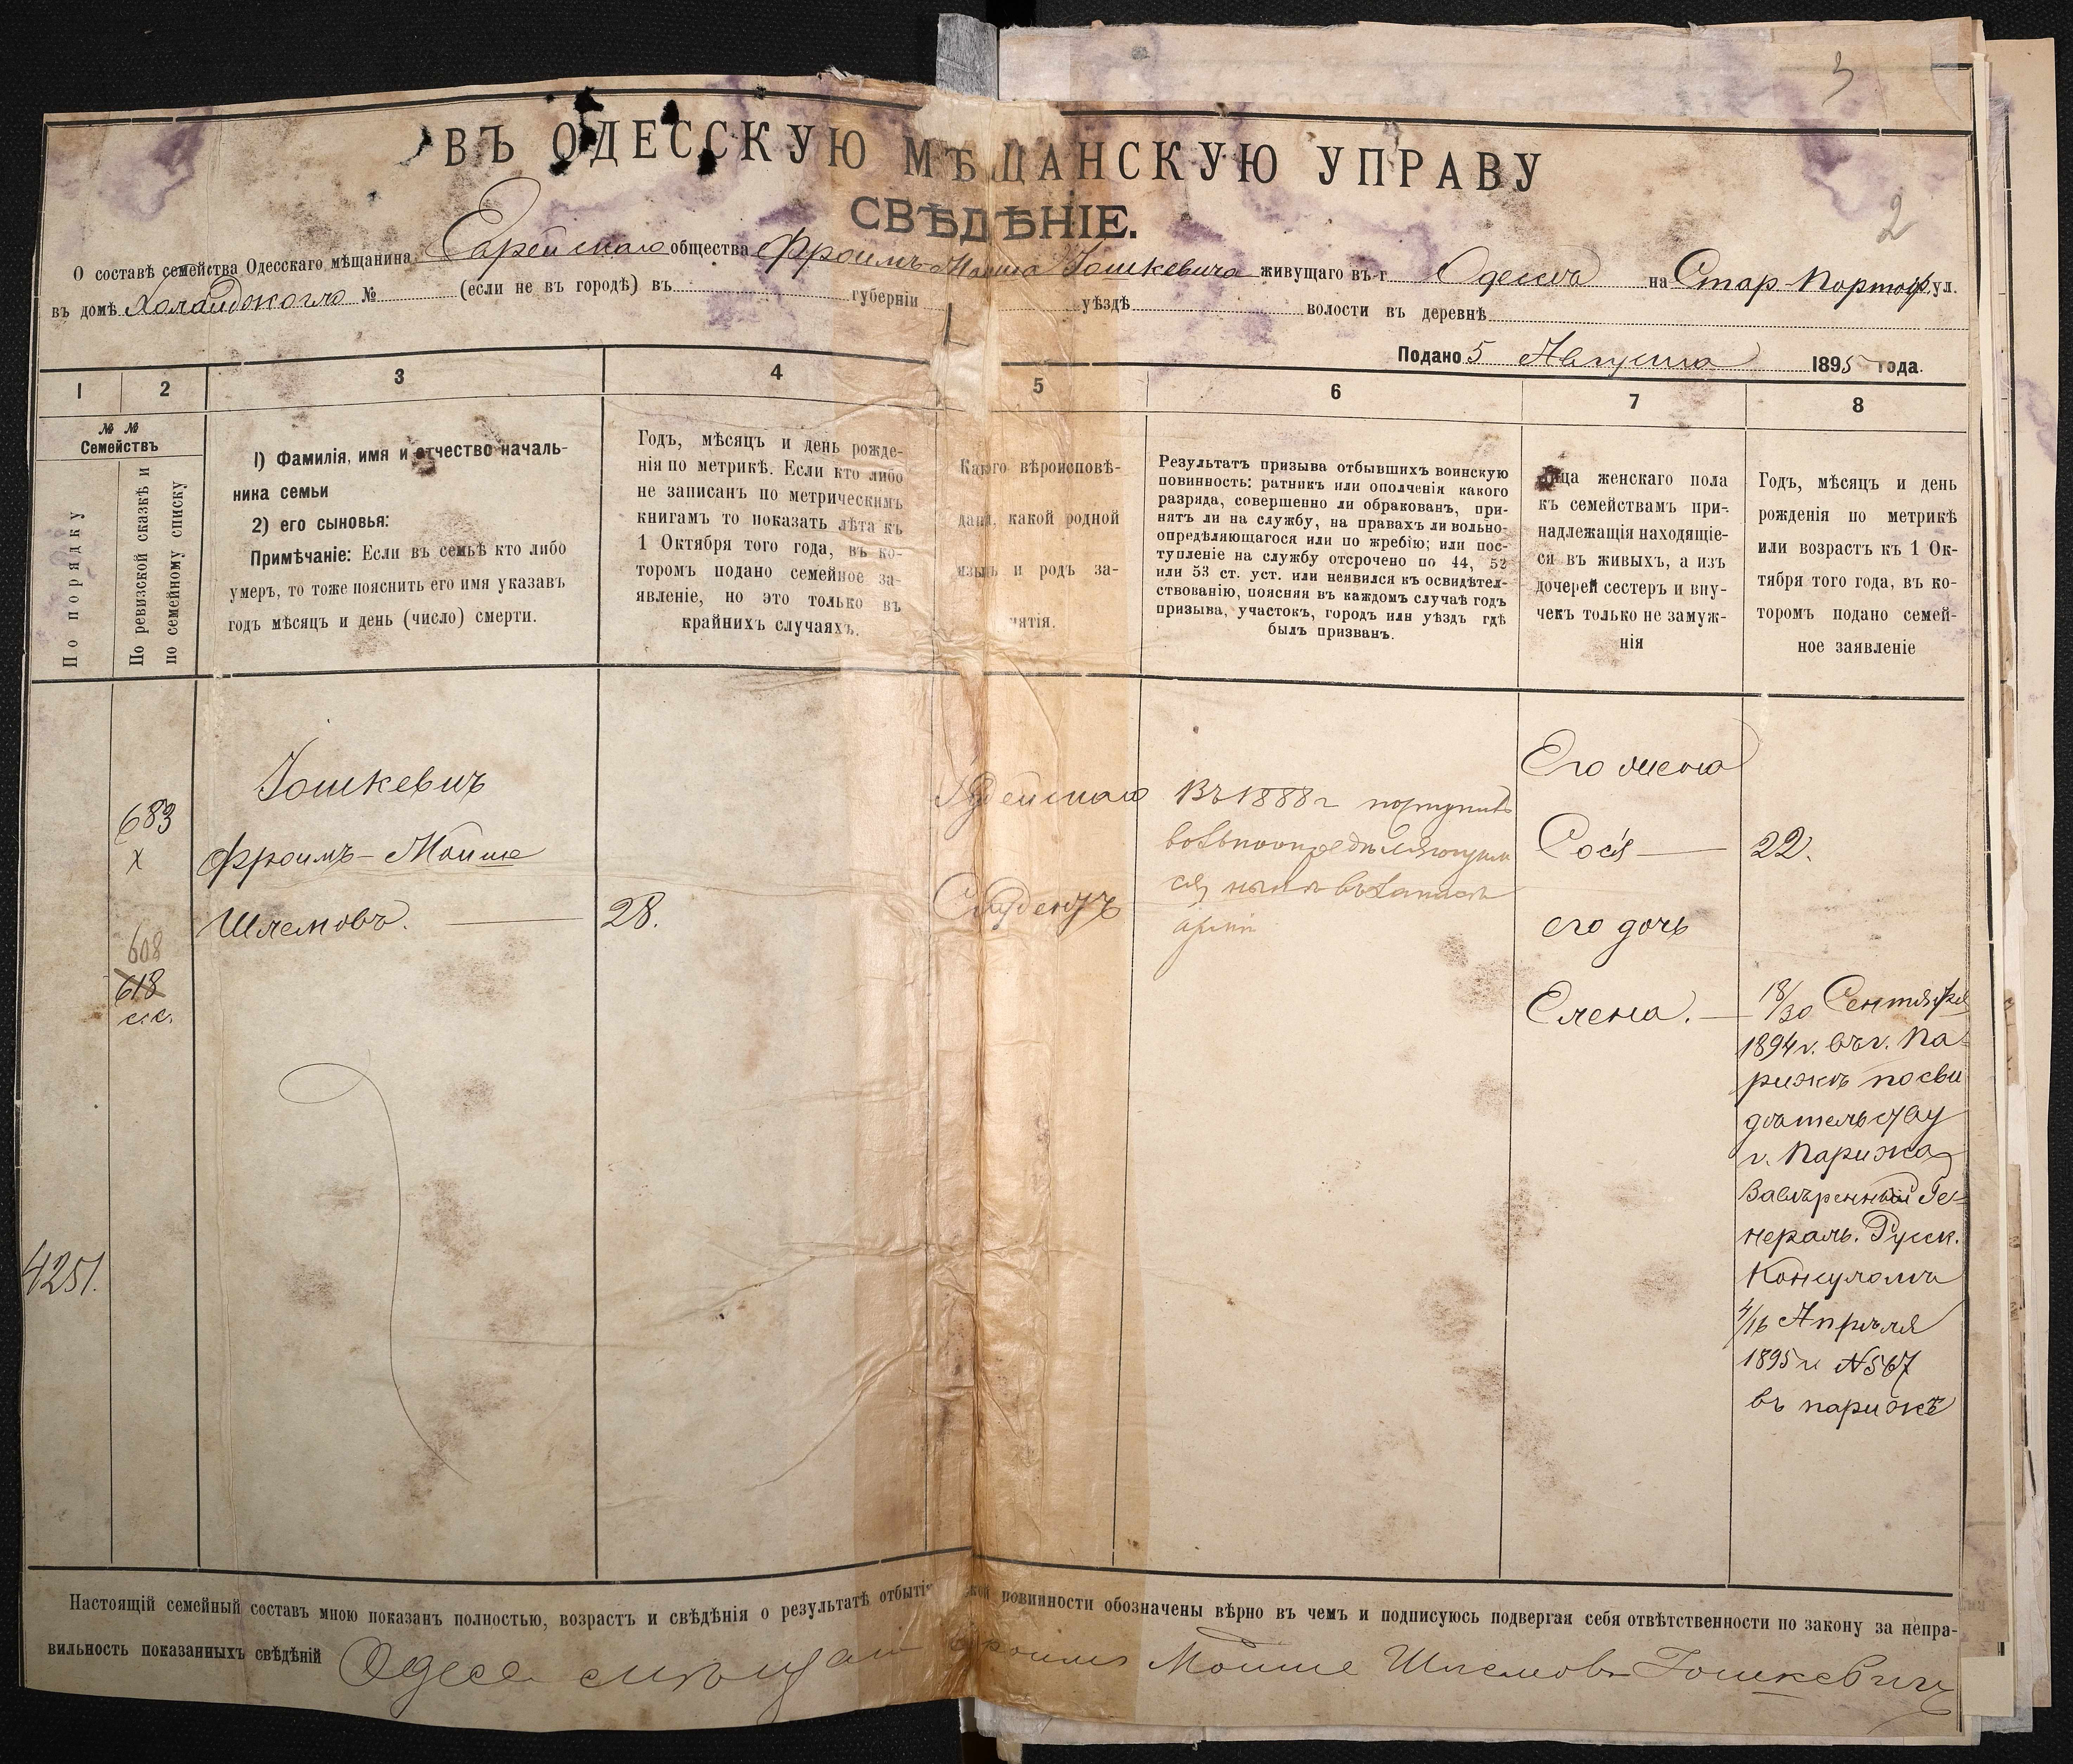 3
2
ВЪ ОДЕССКУЮ МѢЩАНСКУЮ УПРАВУ
СВѢДѢНІЕ.
О составѣ семейства Одесскаго мѣщанина Еврейскаго общества Фроимъ-Моиша Іошкевича живущаго въ г. Одессѣ на Стар. Портоф. ул.
въ домѣ № (если не въ городѣ) въ губерніи уѣздѣ волости въ деревнѣ
Подано 5 Августа 1895 года.
1
2
3
4
5
6
7
8
№ №
Семействъ
По порядку
По ревизской сказкѣ и
по семейному списку
1) Фамилія, имя и отчество началь-
ника семьи
2) его сыновья:
Примѣчаніе: Если въ семьѣ кто либо
умеръ, то тоже пояснить его имя указавъ
годъ мѣсяцъ и день (число) смерти.
Годъ, мѣсяцъ и день рожде-
нія по метрикѣ. Если кто либо
не записанъ по метрическимъ
книгамъ то показать лѣта къ
1 Октября того года, въ ко-
торомъ подано семейное за-
явленіе, но это только въ
крайнихъ случаяхъ.
Какого вѣроисповѣ-
данія, какой родной
языкъ и родъ за-
нятія.
Результатъ призыва отбывшихъ воинскую
повинность: ратникъ или ополченія какого
разряда, совершенно ли обракованъ, при-
нятъ ли на службу, на правахъ ли вольно-
опредѣляющагося или по жребію; или пос-
тупленіе на службу отсрочено по 44, 52
или 53 ст. уст. или неявился къ освидѣтел-
ствованію, поясняя въ каждомъ случаѣ годъ
призыва, участокъ, городъ или уѣздъ гдѣ
былъ призванъ.
Лица женскаго пола
къ семействамъ при-
надлежащія находящіе-
ся въ живыхъ, а изъ
дочерей сестеръ и вну-
чекъ только не замуж-
нія
Годъ, мѣсяцъ и день
рожденія по метрикѣ
или возрастъ къ 1 Ок-
тября того года, въ ко-
торомъ подано семей-
ное заявленіе
4251.
683
х
608
618
с.с.
Іошкевичъ
Фроимъ-Моише
Шлемовъ.
28.
Іудейскаго
Студентъ
Въ 1888 г поступилъ
вольноопредѣляющим
ся, нынѣ въ запасѣ
арміи
Его жена
Сося
его дочь
Елена.
22.
18/30 Сентября
1894 г. въ г. Па-
рижѣ по сви
дѣтельству
г. Парижа
Завѣренный Ге-
нераль. Русск.
Консуломъ
4/16 Апрѣля
1895 г. №567
въ парижѣ
Настоящій семейный составъ мною показанъ полностью, возрастъ и свѣдѣнія о результатѣ отбытія повинности обозначены вѣрно въ чемъ и подписуюсь подвергая себя отвѣтственности по закону за непра-
вильность показанныхъ свѣдѣній Одесс мѣщан Фроимъ Моише Шлемовъ Іошкевичъ